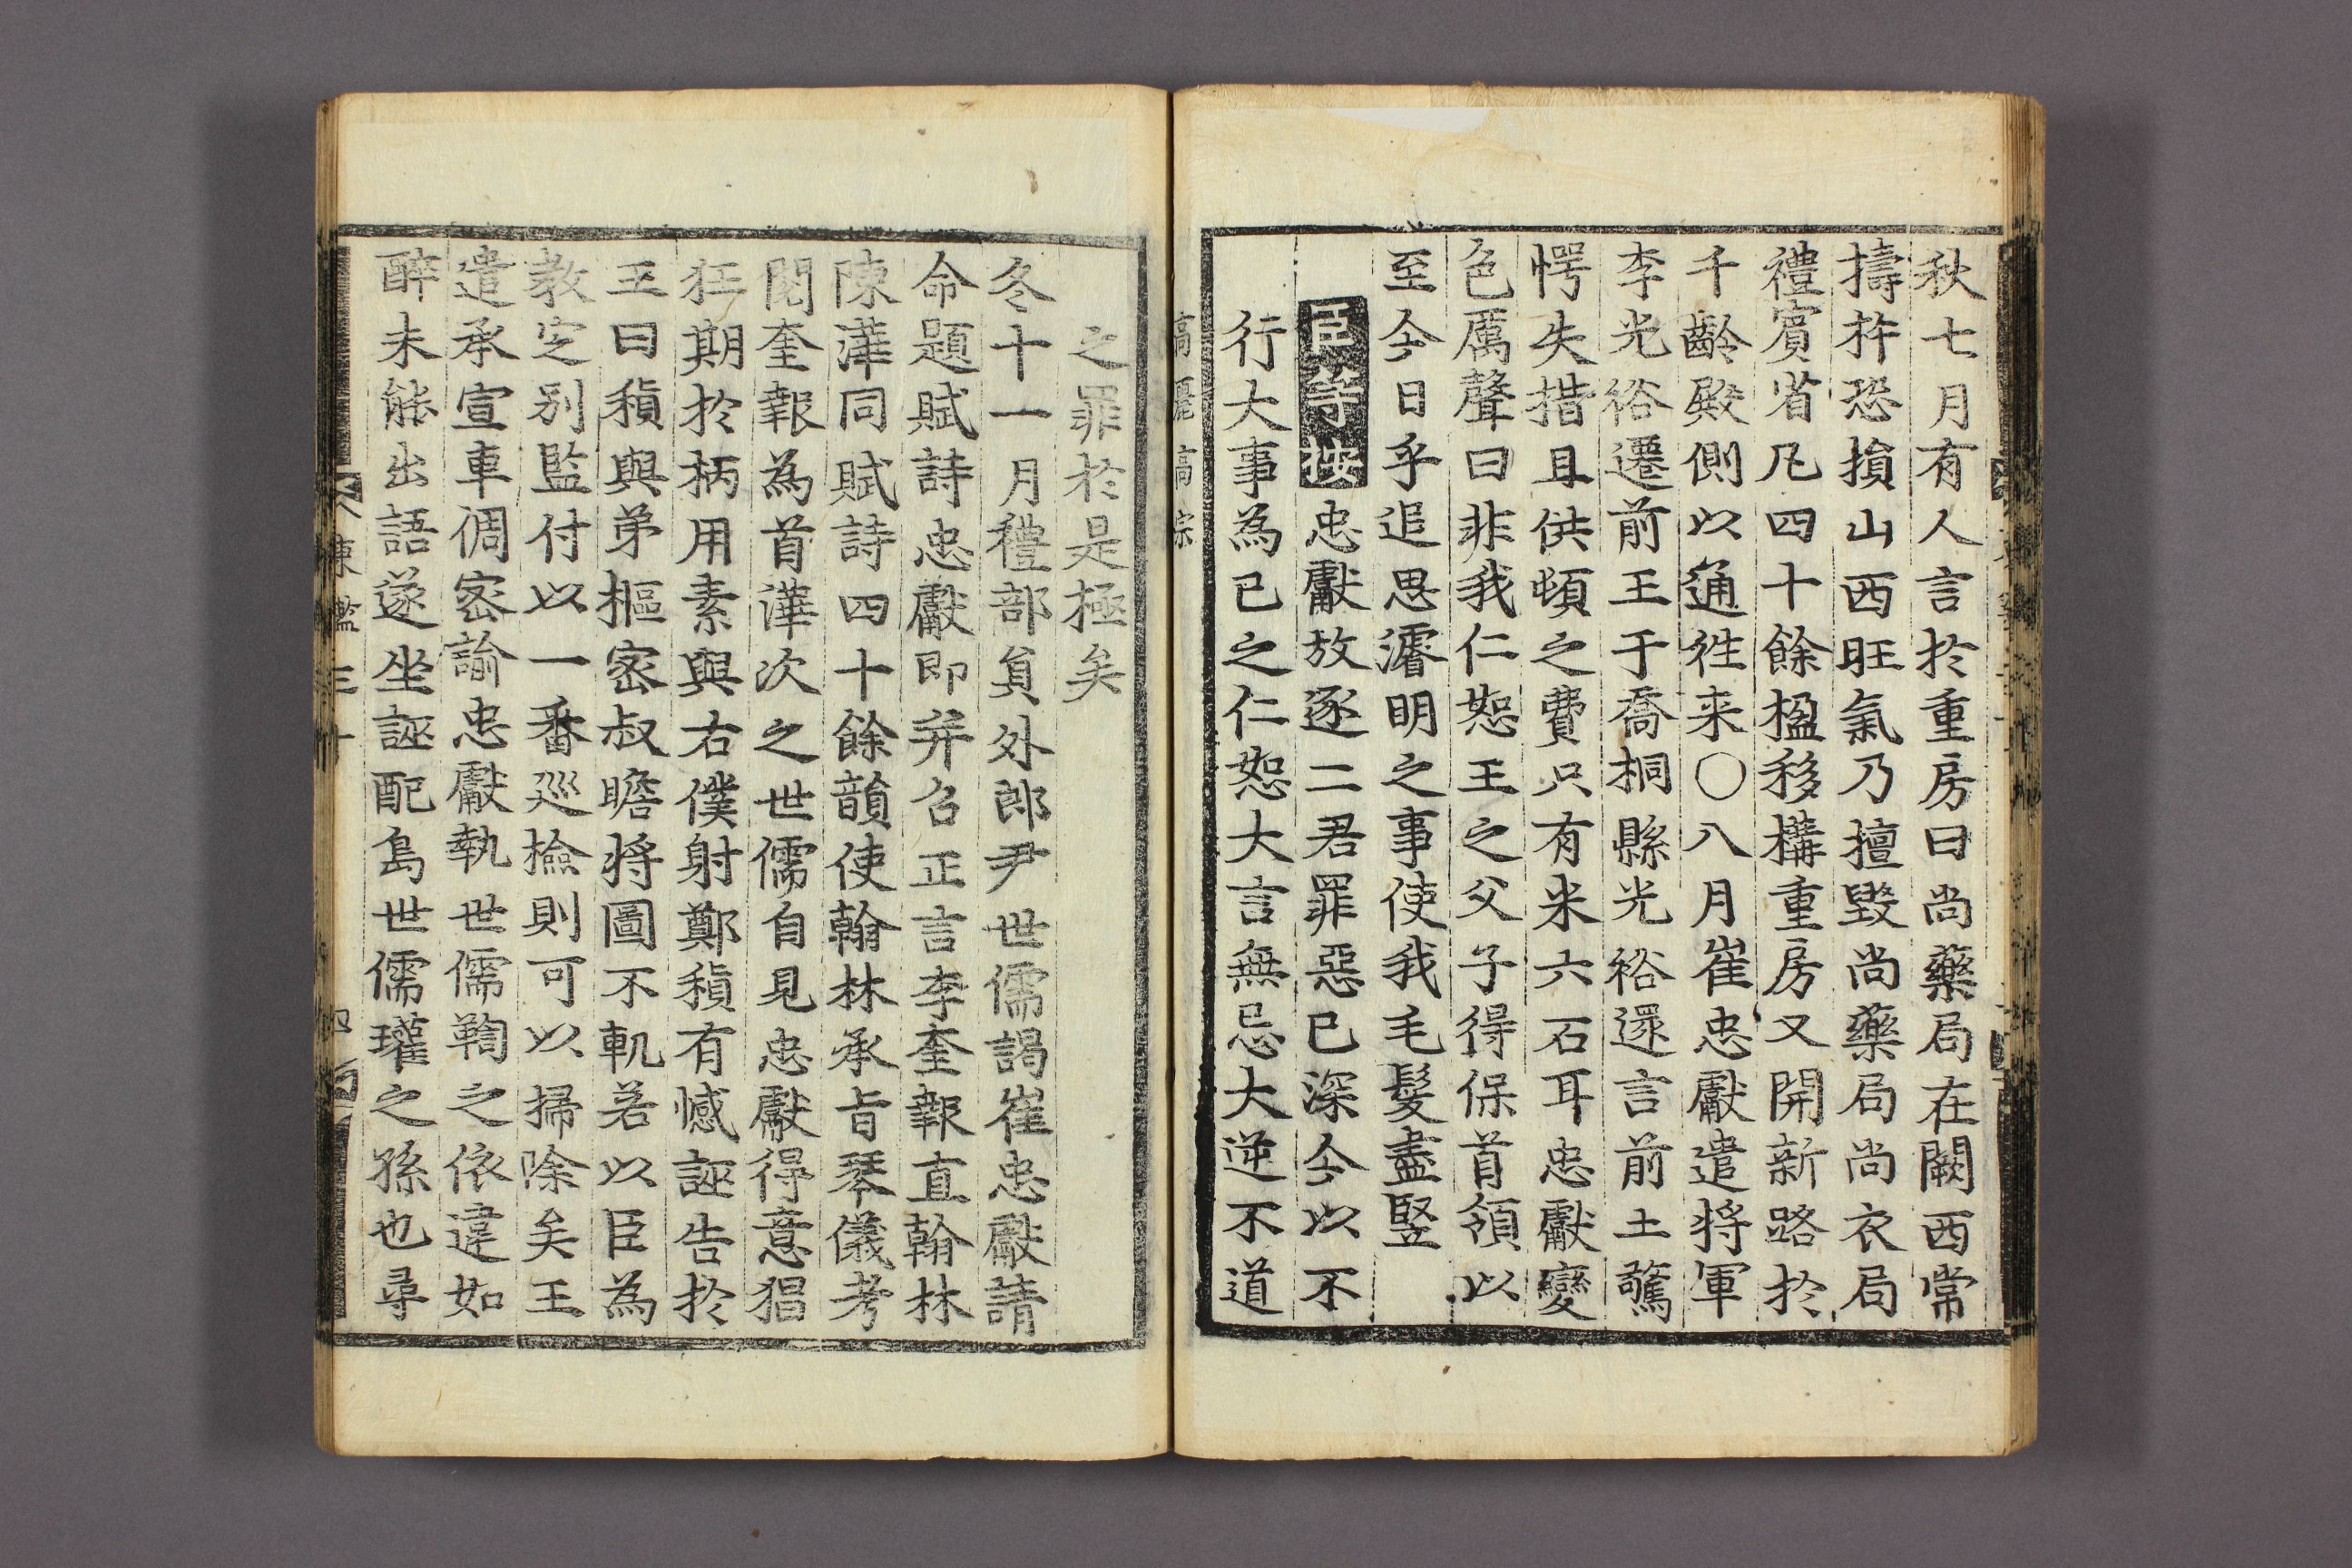 秋七月有人言於重房曰尚藥局在闕西常
擣杵恐損山西旺氣乃擅毀尚藥局尚衣局
禮賓省凡四十餘楹移構重房又開新路於
千齡殿側以通徃来〇八月崔忠獻遣將軍
李光裕遷前王于喬桐縣光裕還言前王驚
愕失措且供頓之費只有米六石耳忠獻變
色厲聲曰非我仁恕王之父子得保首領以
至今日乎追思濬明之事使我毛髮盡竪
臣等按忠獻放逐二君罪惡已深今以不
行大事為已之仁恕大言無忌大逆不道
高麗高宗
之罪於是極矣
冬十一月禮部員外郎尹世儒謁崔忠獻請
命題賦詩忠獻即并召正言李奎報直翰林
陳澕同賦詩四十餘韻使翰林承旨琴儀考
閱奎報為首澕次之世儒自見忠獻得意猖
狂期於柄用素與右僕射鄭稹有憾誣告於
王曰稹與弟樞密叔瞻將圖不軌若以臣為
教定别監付以一番巡撿則可以掃除矣王
遣承宣車倜密諭忠獻執世儒鞫之依違如
醉未能出語遂坐誣配島世儒瓘之孫也尋